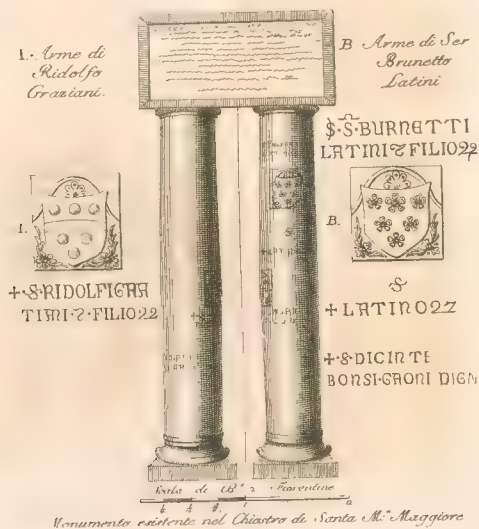 1. Arme di
Ridolfo
Graziani.
B Arme di Ser
Brunetto
Latini
S. S. BURNETTI
LATINI ⁊ FILIO22
1.
B.
+ S. RIDOLFI GRA
TIANI · ⁊ · FILIO22
S
+ LATINO27
+ S DICINTE
BONSI · GAONI DIGN
Scala di 2 Fiorentine
Monumento esistente nel Chiostro di Santa M.ª Maggiore